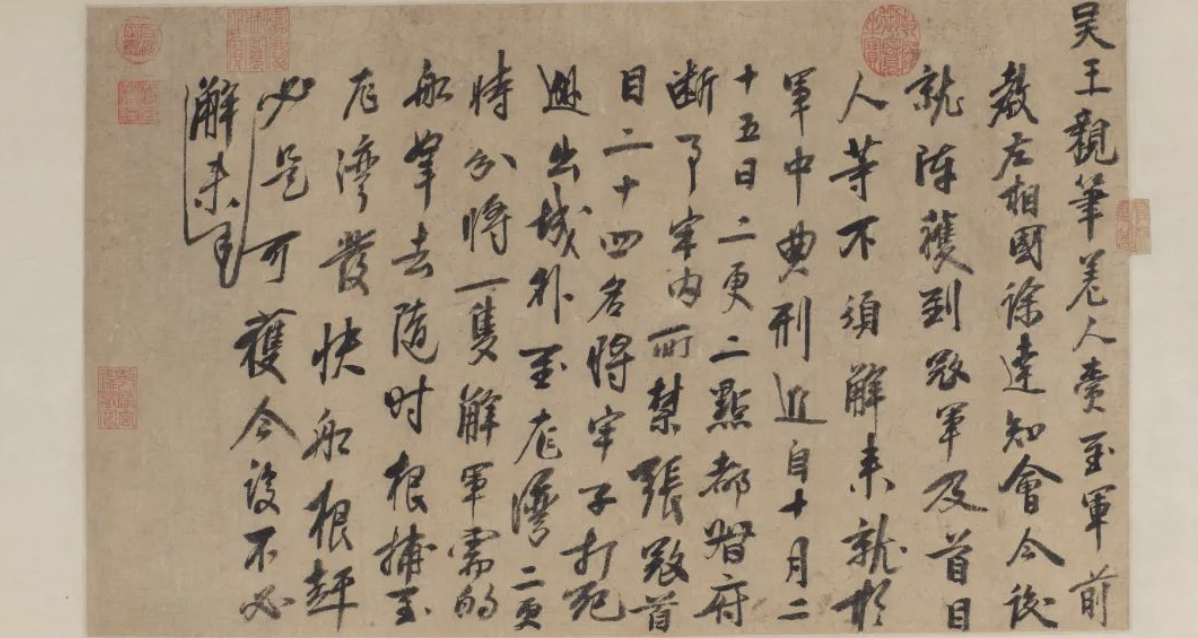 吴王親筆差人賫至軍前
教左相國徐達知會今後
就陣獲到寇軍及首目
人等不須解来就於
軍中典刑近自十月二
十五日二更二點都督府
断了牢内所禁張寇首
目二十四名将牢子打死
逃出城外至龙灣二更
時分将一隻解軍需的
船拏去随时根捕至
龙灣發快船根赶
必是可獲今後不必
解来也